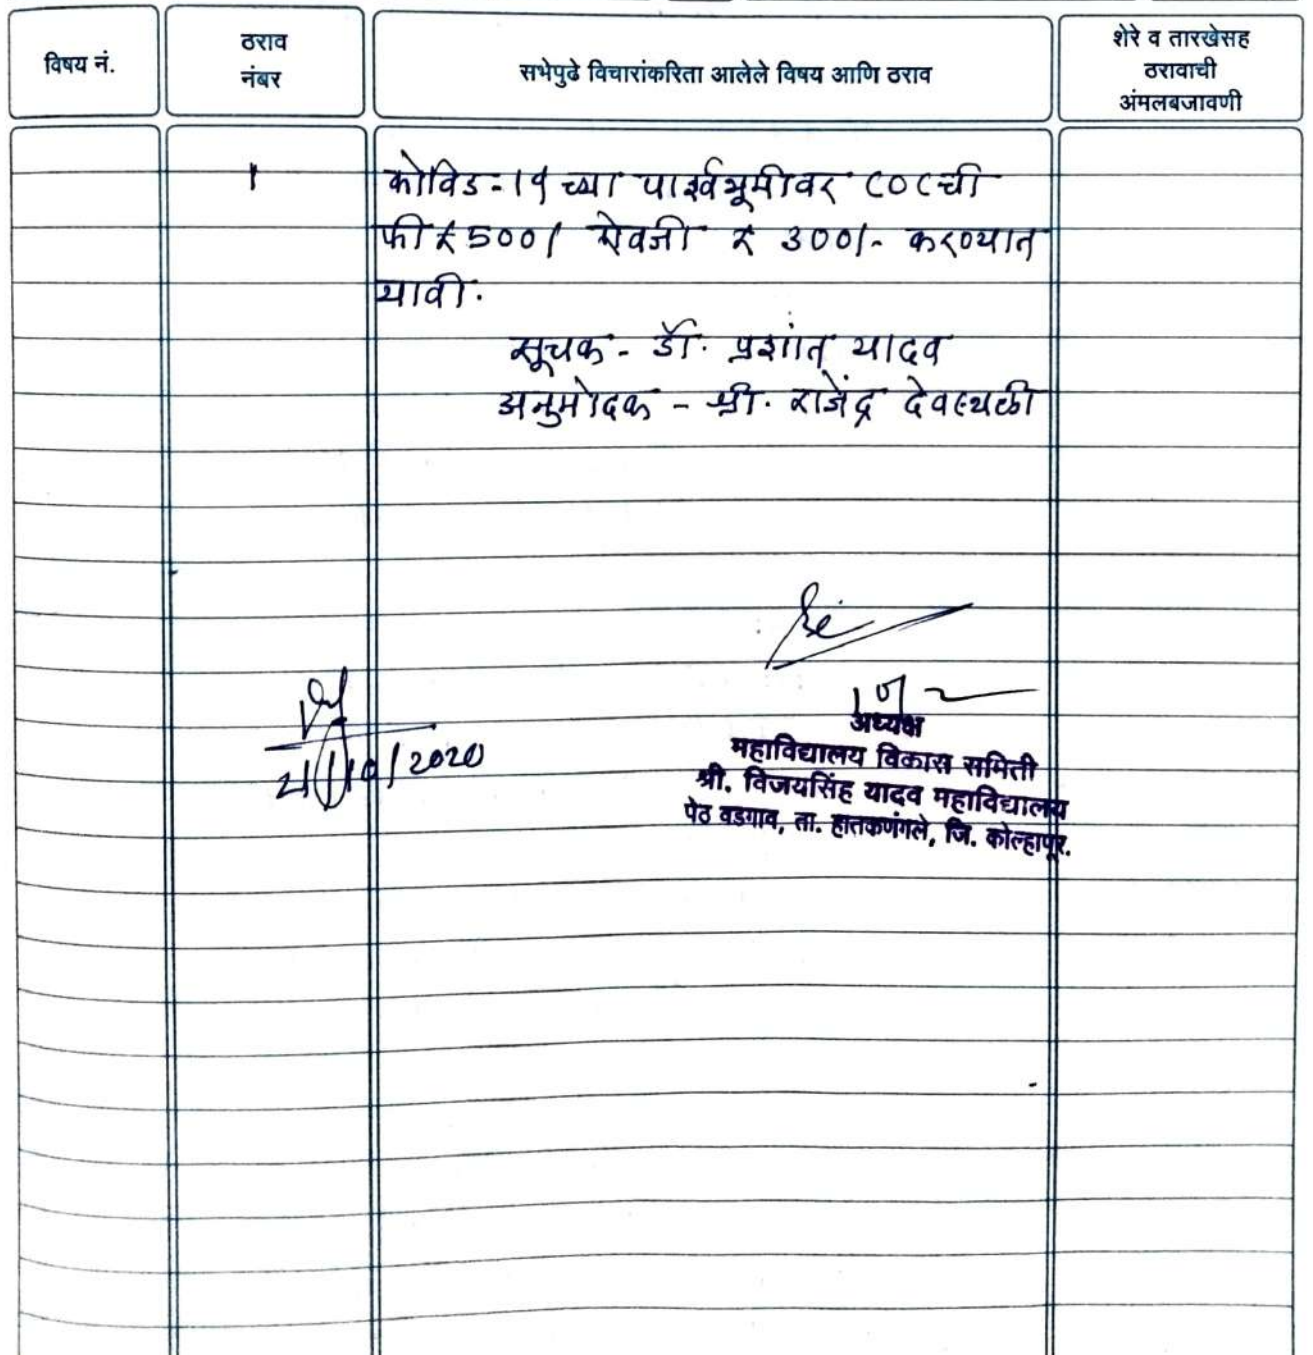 विषय नं.
ठराव
नंबर
सभेपुढे विचारांकरिता आलेले विषय आणि ठराव
शेरे व तारखेसह
ठरावाची
अंमलबजावणी
१
कोविड-19 च्या पार्श्वभूमीवर COC ची
फी ₹ 500/ ऐवजी ₹ 300/- करण्यात
यावी.
सूचक - डॉ. प्रशांत यादव
अनुमोदक - श्री. राजेंद्र देवस्थळी
/10/2020
अध्यक्ष
महाविद्यालय विकास समिती
श्री. विजयसिंह यादव महाविद्यालय
पेठ वडगाव, ता. हातकणंगले, जि. कोल्हापूर.